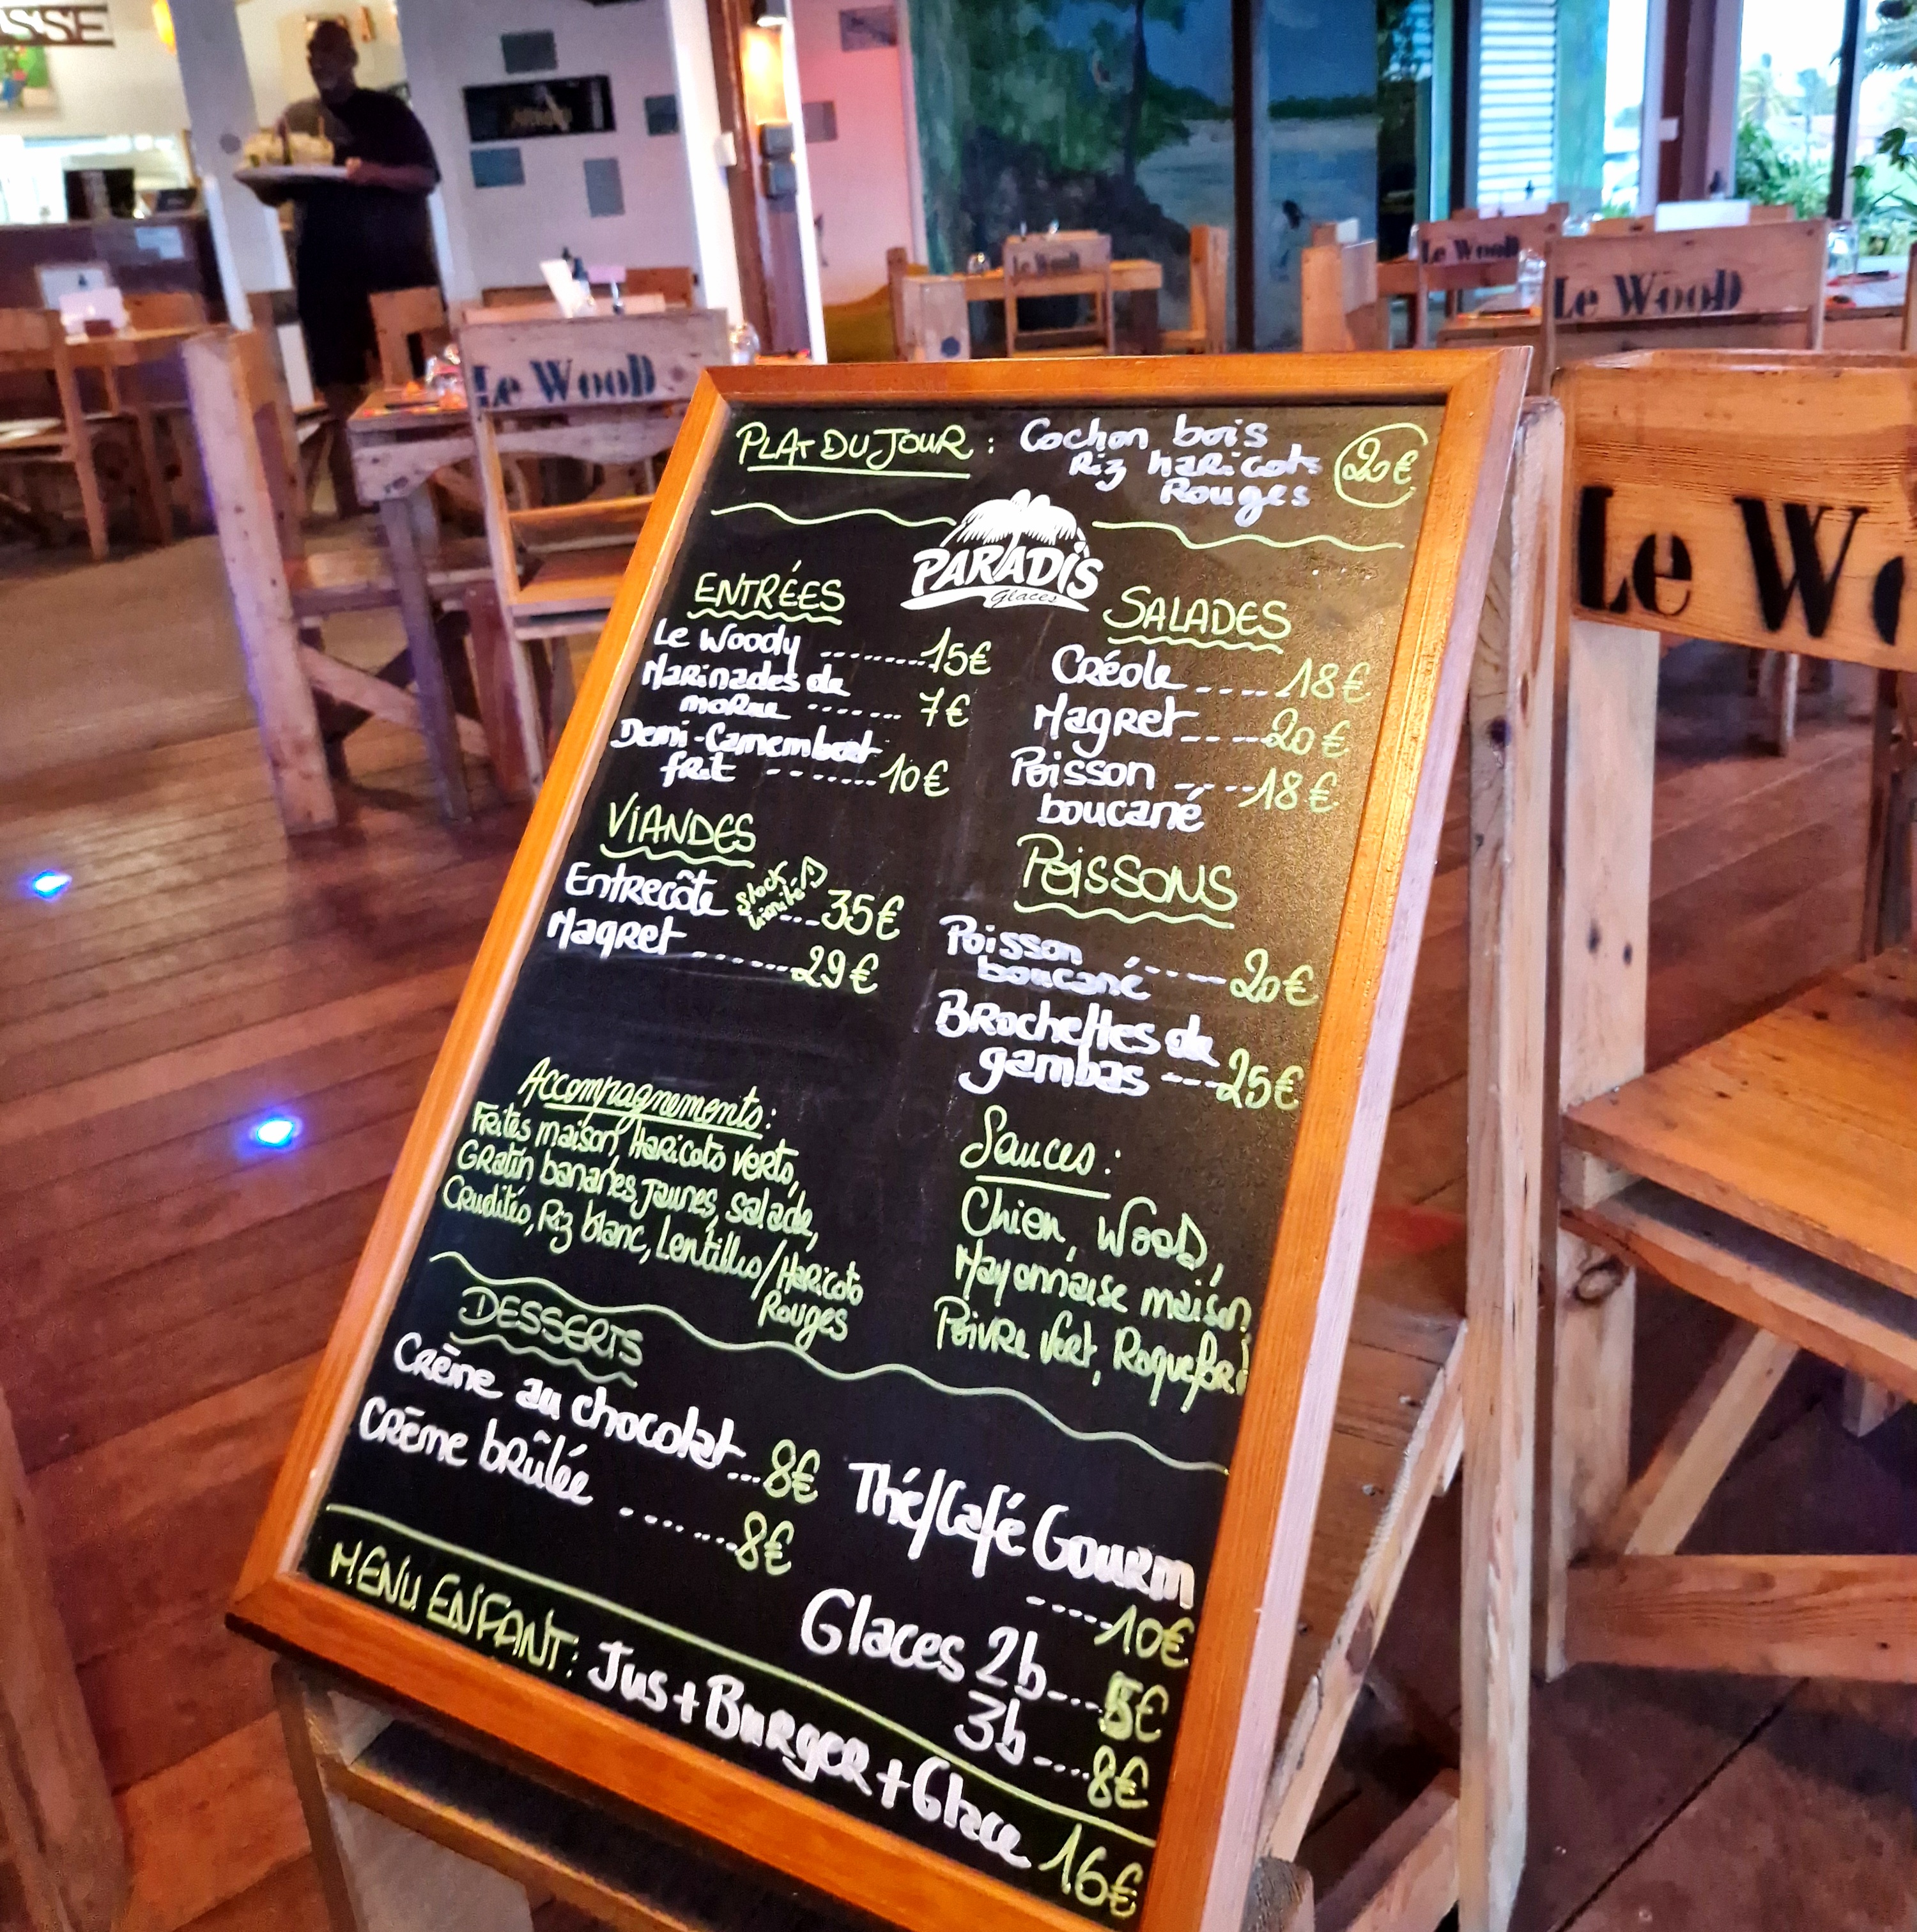 SSE
Le WooD
Le WooD
Le WooD
Le WooD
Le Wo
PLAT DU JOUR : Cochon bois 20€
Riz haricots
Rouges
PARADIS
Glaces
ENTRÉES
Le Woody ......... 15€
Marinades de
morue ....... 7€
Demi-Camembert
frit ....... 10€
SALADES
Créole ..... 18€
Magret ..... 20€
Poisson ..... 18€
boucané
VIANDES
Entrecôte stock limité ... 35€
Magret ....... 29€
POISSONS
Poisson ...... 20€
boucané
Brochettes de
gambas ---- 25€
Accompagnements:
Frites maison, Haricots verts,
Gratin bananes jaunes, salade,
Crudités, Riz blanc, Lentilles/Haricots
Rouges
Sauces:
Chien, WooD,
Mayonnaise maison,
Poivre Vert, Roquefort
DESSERTS
Crème au chocolat ... 8€
Crème brûlée ....... 8€
Thé/Café Gourm
---- 10€
Glaces 2b .... 5€
3b .... 8€
MENU ENFANT: Jus + Burger + Glace 16€